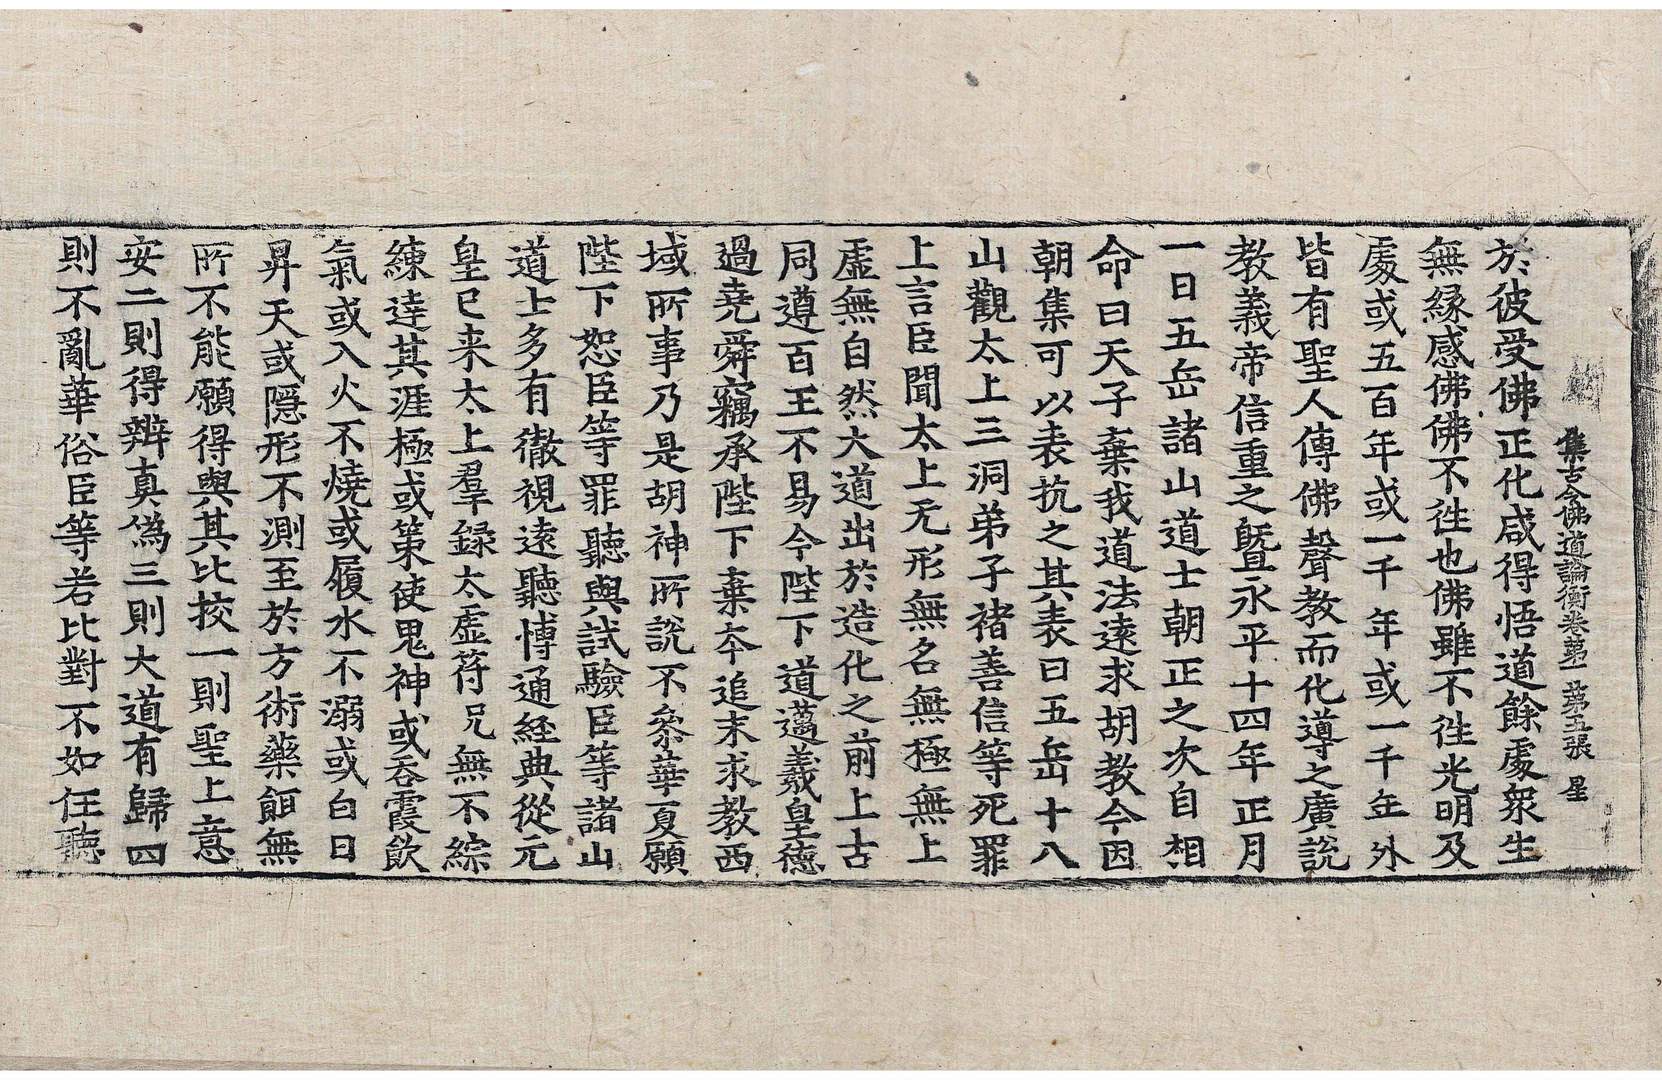 集古今佛道論衡卷第一 第五張 星
於彼受佛正化咸得悟道餘處衆生
無緣感佛佛不徃也佛雖不徃光明及
處或五百年或一千年或一千年外
皆有聖人傳佛聲教而化導之廣說
教義帝信重之暨永平十四年正月
一日五岳諸山道士朝正之次自相
命曰天子棄我道法遠求胡教今因
朝集可以表抗之其表曰五岳十八
山觀太上三洞弟子褚善信等死罪
上言臣聞太上无形無名無極無上
虛無自然大道出於造化之前上古
同遵百王不易今陛下道邁羲皇德
過堯舜竊承陛下棄夲追末求教西
域所事乃是胡神所說不叅華夏願
陛下恕臣等罪聽與試驗臣等諸山
道上多有徹視遠聽博通經典從元
皇已来太上羣錄太虛符呪無不綜
練達其涯極或策使鬼神或吞霞飲
氣或入火不燒或履水不溺或白日
昇天或隱形不測至於方術藥餌無
所不能願得與其比挍一則聖上意
安二則得辯真僞三則大道有歸四
則不亂華俗臣等若比對不如任聽